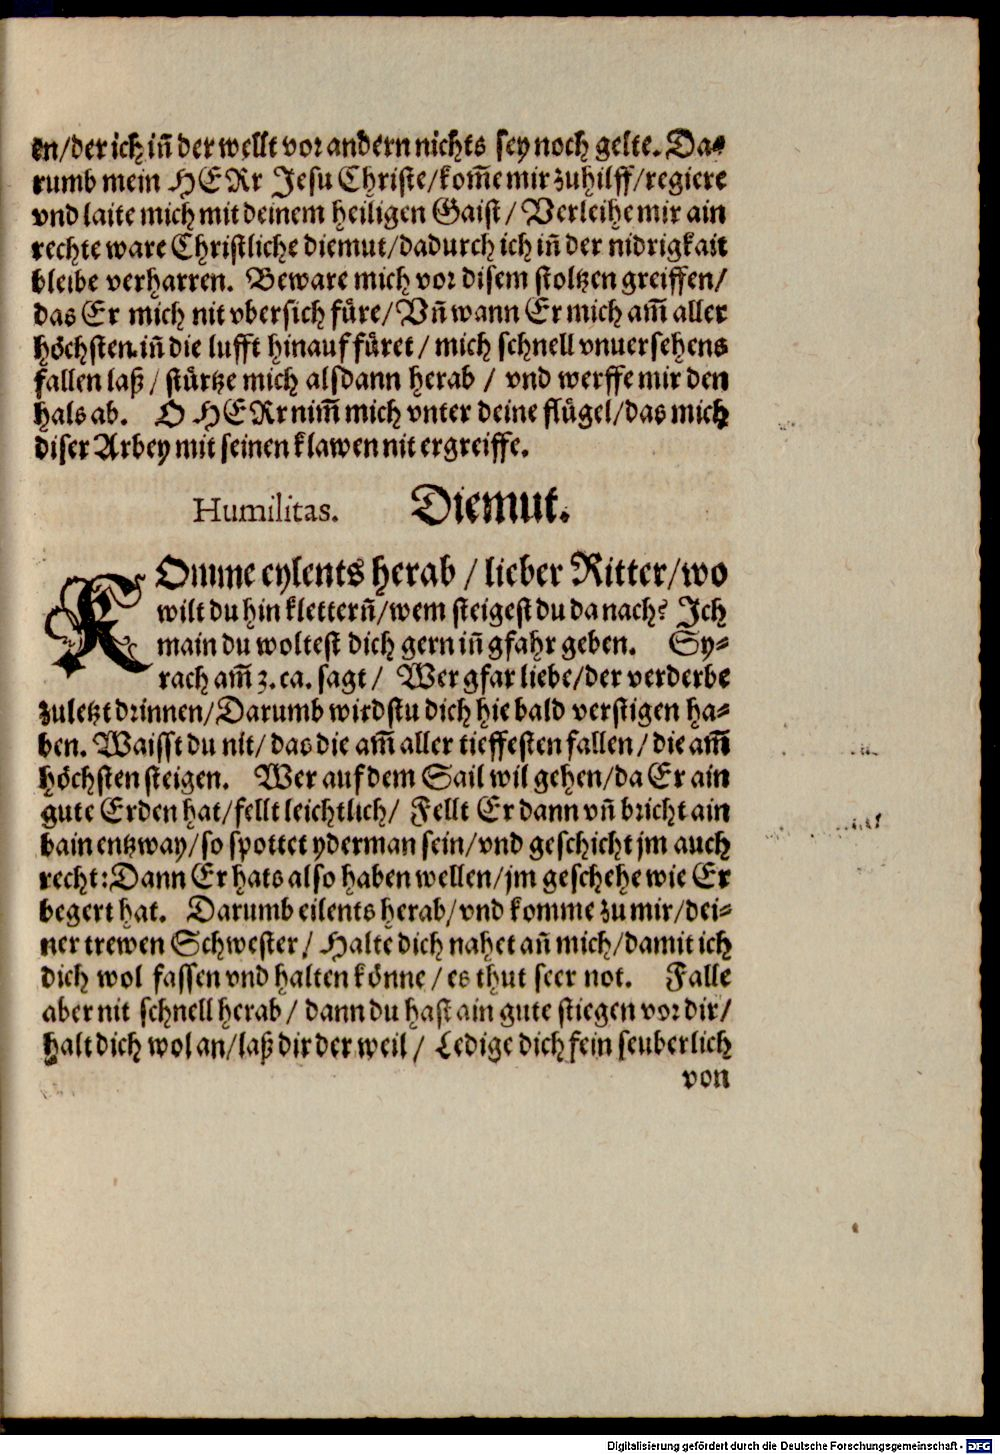 en/der ich in̄ der wellt vor andern nichts sey noch gelte. Da-
rumb mein HERr Jesu Christe/kom̄e mir zuhilff/regiere
vnd laite mich mit deinem heiligen Gaist / Verleihe mir ain
rechte ware Christliche diemut/dadurch ich in̄ der nidrigkait
bleibe verharren. Beware mich vor disem stoltzen greiffen/
das Er mich nit vbersich füre/Vn̄ wann Er mich am̄ aller
höchsten in̄ die lufft hinauf füret / mich schnell vnuersehens
fallen laß / stürtze mich alsdann herab / vnd werffe mir den
hals ab. O HERr nim̄ mich vnter deine flügel/das mich
diser Arbey mit seinen klawen nit ergreiffe.
Humilitas. Diemut.
KOmme eylents herab / lieber Ritter/wo
wilt du hin klettern̄/wem steigest du da nach? Ich
main du woltest dich gern in̄ gfahr geben. Sy-
rach am̄ 3. ca. sagt / Wer gfar liebe/der verderbe
zuletzt drinnen/Darumb wirdstu dich hie bald verstigen ha-
ben. Waisst du nit/ das die am̄ aller tieffesten fallen / die am̄
höchsten steigen. Wer auf dem Sail wil gehen/da Er ain
gute Erden hat/fellt leichtlich/ Fellt Er dann vn̄ bricht ain
bain entzway/so spottet yderman sein/vnd geschicht jm auch
recht: Dann Er hats also haben wellen/jm geschehe wie Er
begert hat. Darumb eilents herab/vnd komme zu mir/dei-
ner trewen Schwester / Halte dich nahet an̄ mich/damit ich
dich wol fassen vnd halten könne / es thut seer not. Falle
aber nit schnell herab / dann du hast ain gute stiegen vor dir/
halt dich wol an/laß dir der weil / Ledige dich fein seuberlich
von
Digitalisierung gefördert durch die Deutsche Forschungsgemeinschaft - DFG